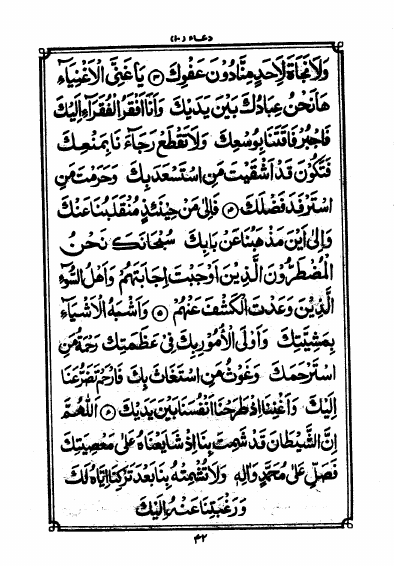 دعاء (١٠)
وَلَا نَجَاةَ لِاَحَدٍ مِنَّا دُوْنَ عَفْوِكَ (٣) يَا غَنِيَّ الْاَغْنِيَاءِ
هَا نَحْنُ عِبَادُكَ بَيْنَ يَدَيْكَ وَاَنَا اَفْقَرُ الْفُقَرَاءِ اِلَيْكَ
فَاجْبُرْ فَاقَتَنَا بِوُسْعِكَ وَلَا تَقْطَعْ رَجَاءَنَا بِمَنْعِكَ
فَتَكُوْنَ قَدْ اَشْقَيْتَ مَنِ اسْتَسْعَدَ بِكَ وَحَرَمْتَ مَنِ
اسْتَرْفَدَ فَضْلَكَ فَاِلٰى مَنْ حِيْنَئِذٍ مُنْقَلَبُنَا عَنْكَ
وَاِلٰى اَيْنَ مَذْهَبُنَا عَنْ بَابِكَ سُبْحَانَكَ نَحْنُ
الْمُضْطَرُّوْنَ الَّذِيْنَ اَوْجَبْتَ اِجَابَتَهُمْ وَاَهْلُ السُّوْءِ
الَّذِيْنَ وَعَدْتَ الْكَشْفَ عَنْهُمْ (٥) وَاَشْبَهُ الْاَشْيَاءِ
بِمَشِيَّتِكَ وَاَوْلَى الْاُمُوْرِ بِكَ فِيْ عَظَمَتِكَ رَحْمَةُ مَنِ
اسْتَرْحَمَكَ وَغَوْثُ مَنِ اسْتَغَاثَ بِكَ فَارْحَمْ تَضَرُّعَنَا
اِلَيْكَ وَاَغْنِنَا اِذْ طَرَحْنَا اَنْفُسَنَا بَيْنَ يَدَيْكَ اَللّٰهُمَّ
اِنَّ الشَّيْطَانَ قَدْ شَمِتَ بِنَا اِذْ شَايَعْنَاهُ عَلٰى مَعْصِيَتِكَ
فَصَلِّ عَلٰى مُحَمَّدٍ وَاٰلِهِ وَلَا تُشْمِتْهُ بِنَا بَعْدَ تَرْكِنَا اِيَّاهُ لَكَ
وَرَغْبَتِنَا عَنْهُ اِلَيْكَ
٤٢